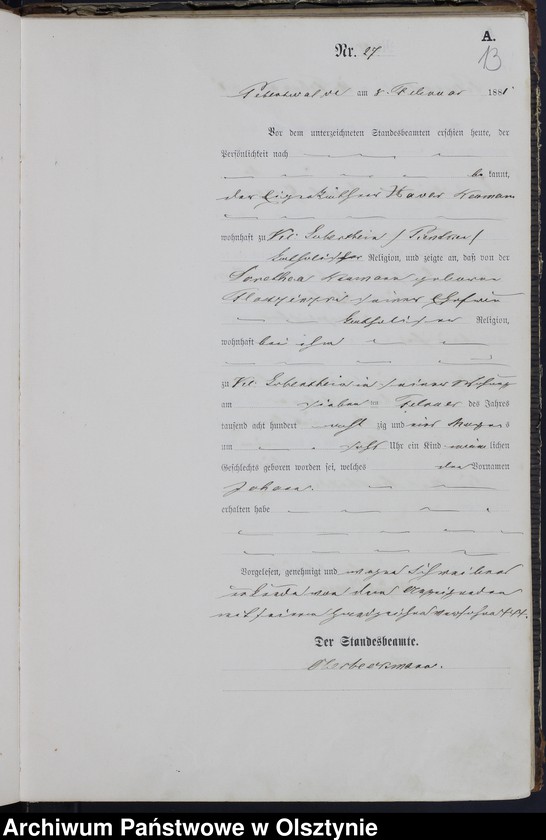 A.
13
Nr. 27
am 8. Februar 1881
Vor dem unterzeichneten Standesbeamten erschien heute, der
Persönlichkeit nach
be kannt,
der Xaver
wohnhaft zu
katholischer Religion, und zeigte an, daß von der
Dorothea geborene
seiner Ehefrau
katholischer Religion,
wohnhaft bei ihm
zu in seiner Wohnung
am sieben ten Februar des Jahres
tausend acht hundert acht zig und eins Morgens
um sechs Uhr ein Kind männ lichen
Geschlechts geboren worden sei, welches den Vornamen
Johann
erhalten habe
Vorgelesen, genehmigt und wegen Schreibens
unkunde von dem Anzeigenden
mit seinem Handzeichen versehen +++.
Der Standesbeamte.
Archiwum Państwowe w Olsztynie